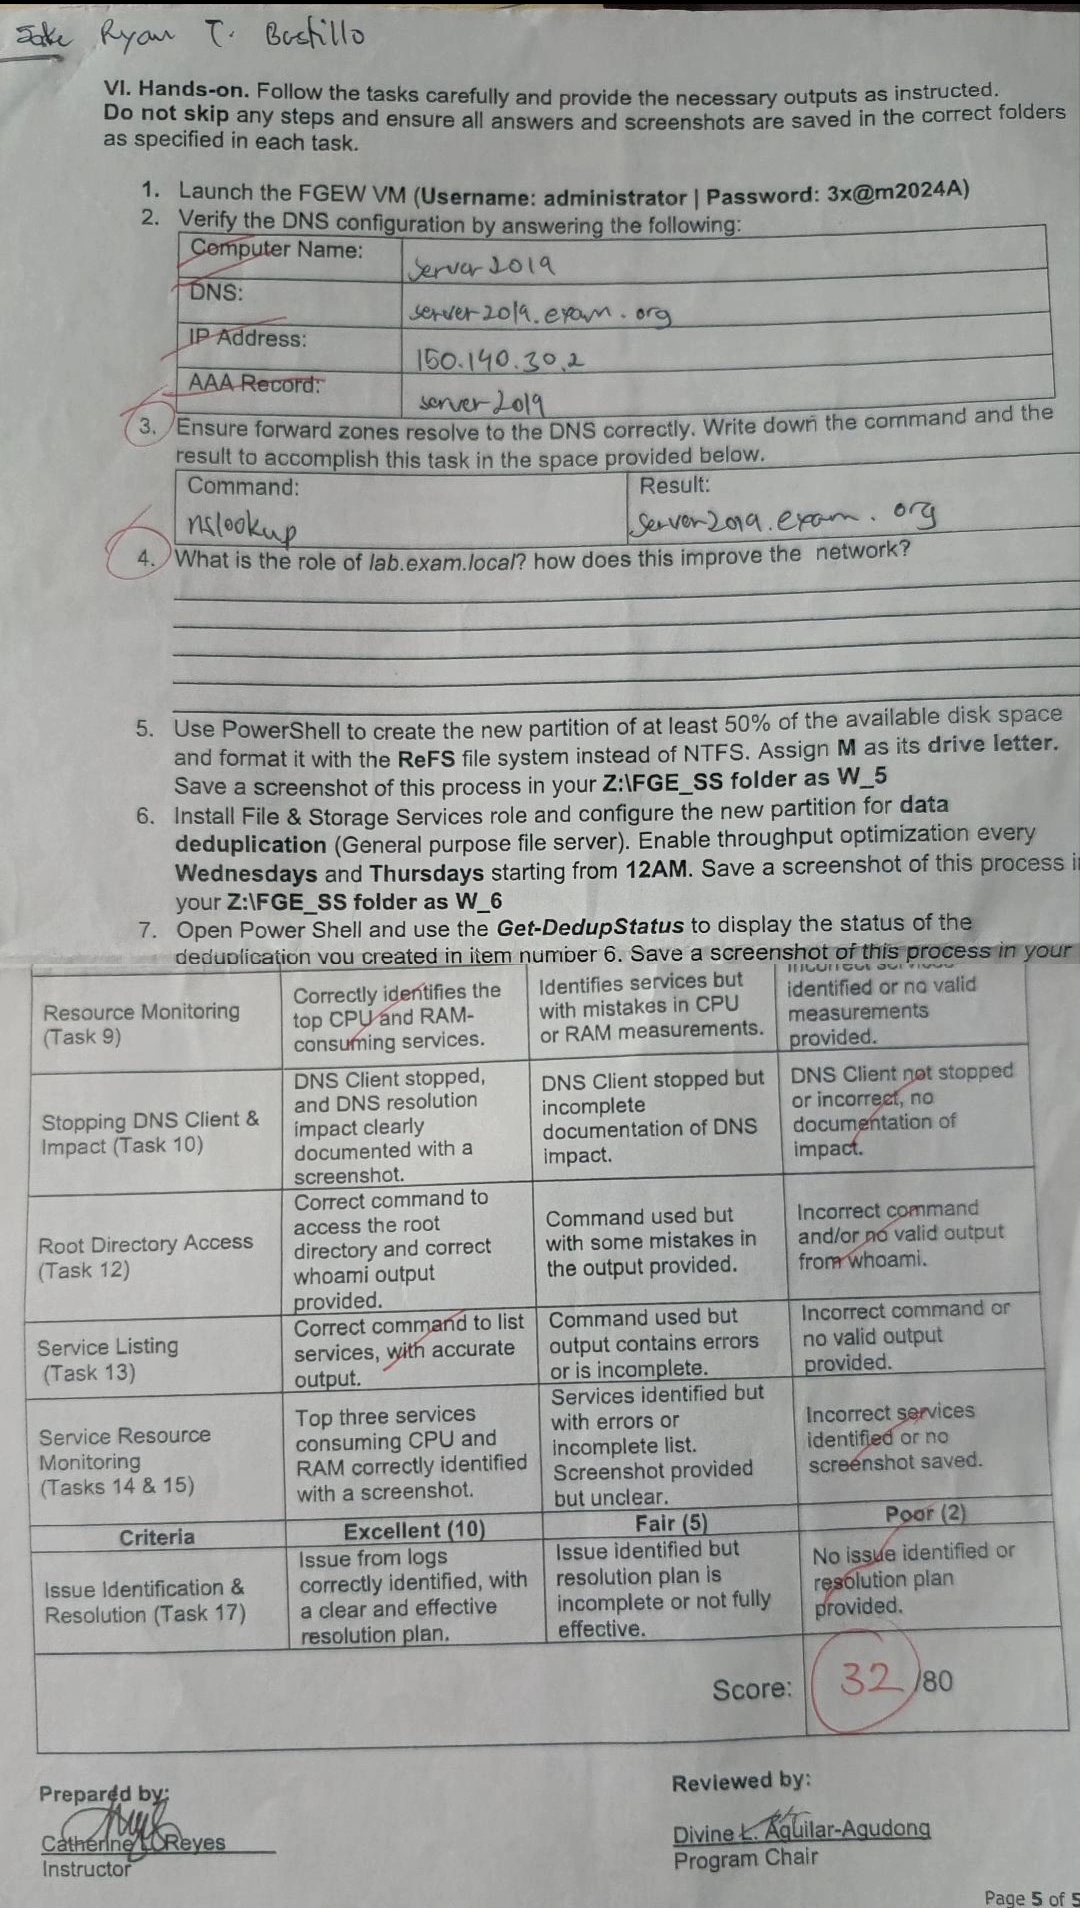 Jake Ryan T. Bastillo
VI. Hands-on. Follow the tasks carefully and provide the necessary outputs as instructed.
Do not skip any steps and ensure all answers and screenshots are saved in the correct folders
as specified in each task.
1. Launch the FGEW VM (Username: administrator | Password: 3x@m2024A)
2. Verify the DNS configuration by answering the following:
Computer Name: server2019
DNS: server2019.exam.org
IP Address: 150.140.30.2
AAA Record: server2019
3. Ensure forward zones resolve to the DNS correctly. Write down the command and the
result to accomplish this task in the space provided below.
Command: Result:
nslookup server2019.exam.org
4. What is the role of lab.exam.local? how does this improve the network?
5. Use PowerShell to create the new partition of at least 50% of the available disk space
and format it with the ReFS file system instead of NTFS. Assign M as its drive letter.
Save a screenshot of this process in your Z:\FGE_SS folder as W_5
6. Install File & Storage Services role and configure the new partition for data
deduplication (General purpose file server). Enable throughput optimization every
Wednesdays and Thursdays starting from 12AM. Save a screenshot of this process
your Z:\FGE_SS folder as W_6
7. Open Power Shell and use the Get-DedupStatus to display the status of the
deduplication you created in item number 6. Save a screenshot of this process in your
Resource Monitoring
(Task 9)
Correctly identifies the
top CPU and RAM-
consuming services.
Identifies services but
with mistakes in CPU
or RAM measurements.
identified or no valid
measurements
provided.
Stopping DNS Client &
Impact (Task 10)
DNS Client stopped,
and DNS resolution
impact clearly
documented with a
screenshot.
DNS Client stopped but
incomplete
documentation of DNS
impact.
DNS Client not stopped
or incorrect, no
documentation of
impact.
Root Directory Access
(Task 12)
Correct command to
access the root
directory and correct
whoami output
provided.
Command used but
with some mistakes in
the output provided.
Incorrect command
and/or no valid output
from whoami.
Service Listing
(Task 13)
Correct command to list
services, with accurate
output.
Command used but
output contains errors
or is incomplete.
Incorrect command or
no valid output
provided.
Service Resource
Monitoring
(Tasks 14 & 15)
Top three services
consuming CPU and
RAM correctly identified
with a screenshot.
Services identified but
with errors or
incomplete list.
Screenshot provided
but unclear.
Incorrect services
identified or no
screenshot saved.
Criteria Excellent (10) Fair (5) Poor (2)
Issue Identification &
Resolution (Task 17)
Issue from logs
correctly identified, with
a clear and effective
resolution plan.
Issue identified but
resolution plan is
incomplete or not fully
effective.
No issue identified or
resolution plan
provided.
Score: 32 /80
Prepared by:
Catherine Reyes
Instructor
Reviewed by:
Divine L. Aguilar-Agudong
Program Chair
Page 5 of 5